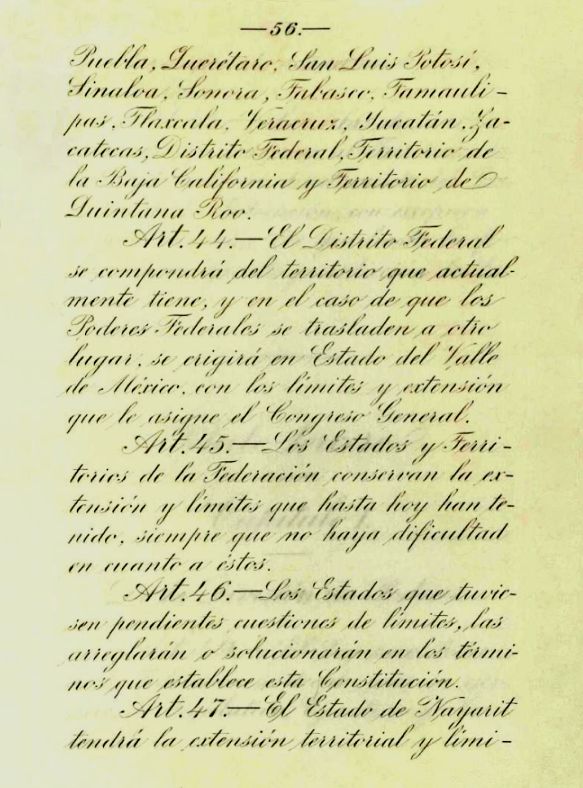 —56.—
Puebla, Querétaro, San Luis Potosí,
Sinaloa, Sonora, Tabasco, Tamauli-
pas, Tlaxcala, Veracruz, Yucatán, Za-
catecas, Distrito Federal, Territorio de
la Baja California y Territorio de
Quintana Roo.
Art. 44.—El Distrito Federal
se compondrá del territorio que actual-
mente tiene, y en el caso de que los
Poderes Federales se trasladen a otro
lugar, se erigirá en Estado del Valle
de México, con los límites y extensión
que le asigne el Congreso General.
Art. 45.—Los Estados y Terri-
torios de la Federación conservan la ex-
tensión y límites que hasta hoy han te-
nido, siempre que no haya dificultad
en cuanto a éstos.
Art. 46.—Los Estados que tuvie-
sen pendientes cuestiones de límites, las
arreglarán o solucionarán en los térmi-
nos que establece esta Constitución.
Art. 47.—El Estado de Nayarit
tendrá la extensión territorial y lími-